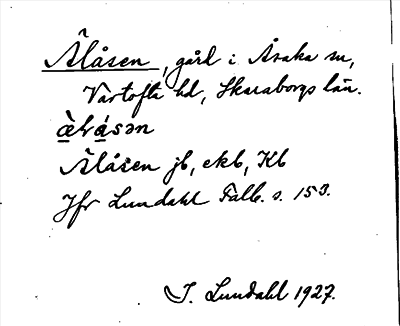 Ålåsen, gård i Åsaka sn,
Vartofta hd, Skaraborgs län.
Älåsen jb, ekb, Kb
Jfr Lundahl Falb. s. 153.
I. Lundahl 1927.